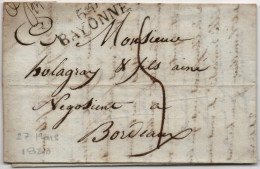 64
BAÏONNE
A Monsieur
holagray & fils ainé
Negociant a
5
Bordeaux
27 Mars
1828